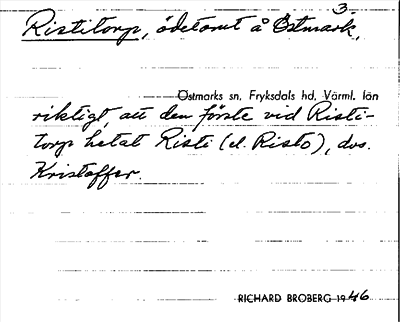 3.
Ristitorp, ödetomt å Östmark,
Östmarks sn. Fryksdals hd. Värml. län
riktigt, att den förste vid Risti-
torp hetat Risti (el. Risto), dvs.
Kristoffer.
RICHARD BROBERG 1946